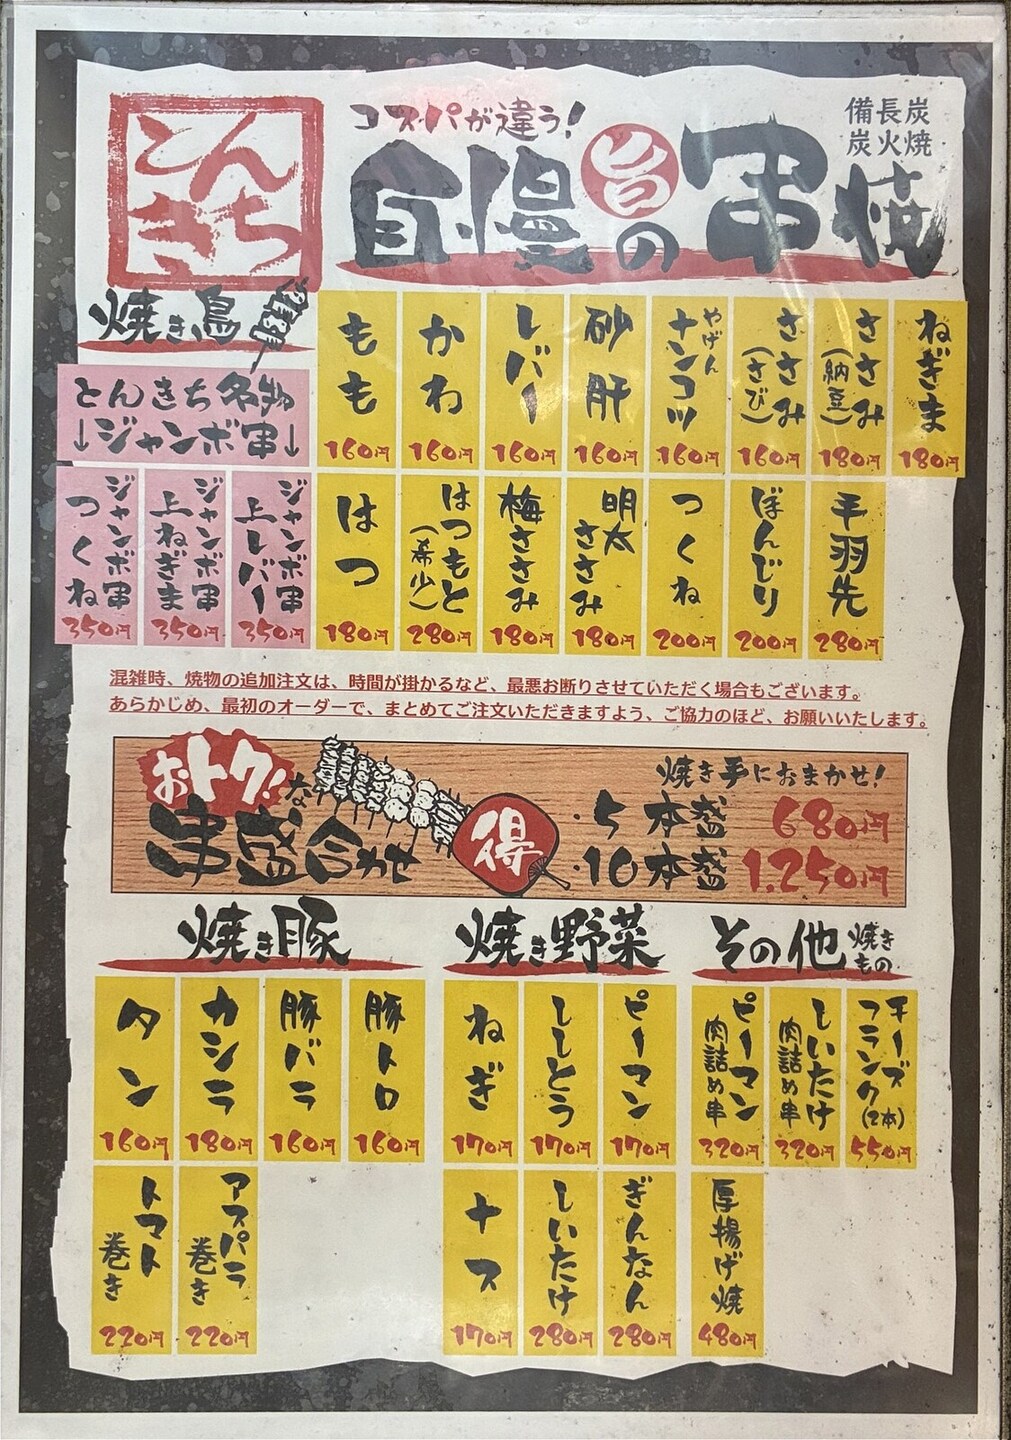 とんきち
コスパが違う!
自慢の旨串焼
備長炭
炭火焼
焼き鳥
もも
160円
かわ
160円
レバー
160円
砂肝
160円
やげん
ナンコツ
160円
ささみ
(さび)
160円
ささみ
(納豆)
180円
ねぎま
180円
とんきち名物
↓ジャンボ串↓
ジャンボ串
つくね
350円
ジャンボ串
上ねぎま
350円
ジャンボ串
上レバー
350円
はつ
180円
はつもと
(希少)
280円
梅ささみ
180円
明太
ささみ
180円
つくね
200円
ぼんじり
200円
手羽先
280円
混雑時、焼物の追加注文は、時間が掛かるなど、最悪お断りさせていただく場合もございます。
あらかじめ、最初のオーダーで、まとめてご注文いただきますよう、ご協力のほど、お願いいたします。
おトク!な
串盛合わせ
得
焼き手におまかせ!
・5本盛 680円
・10本盛 1.250円
焼き豚
タン
160円
カシラ
180円
豚バラ
160円
豚トロ
160円
トマト
巻き
220円
アスパラ
巻き
220円
焼き野菜
ねぎ
170円
ししとう
170円
ピーマン
170円
ナス
170円
しいたけ
280円
ぎんなん
280円
その他焼きもの
ピーマン
肉詰め串
320円
しいたけ
肉詰め串
320円
チーズ
フランク(2本)
550円
厚揚げ焼
480円